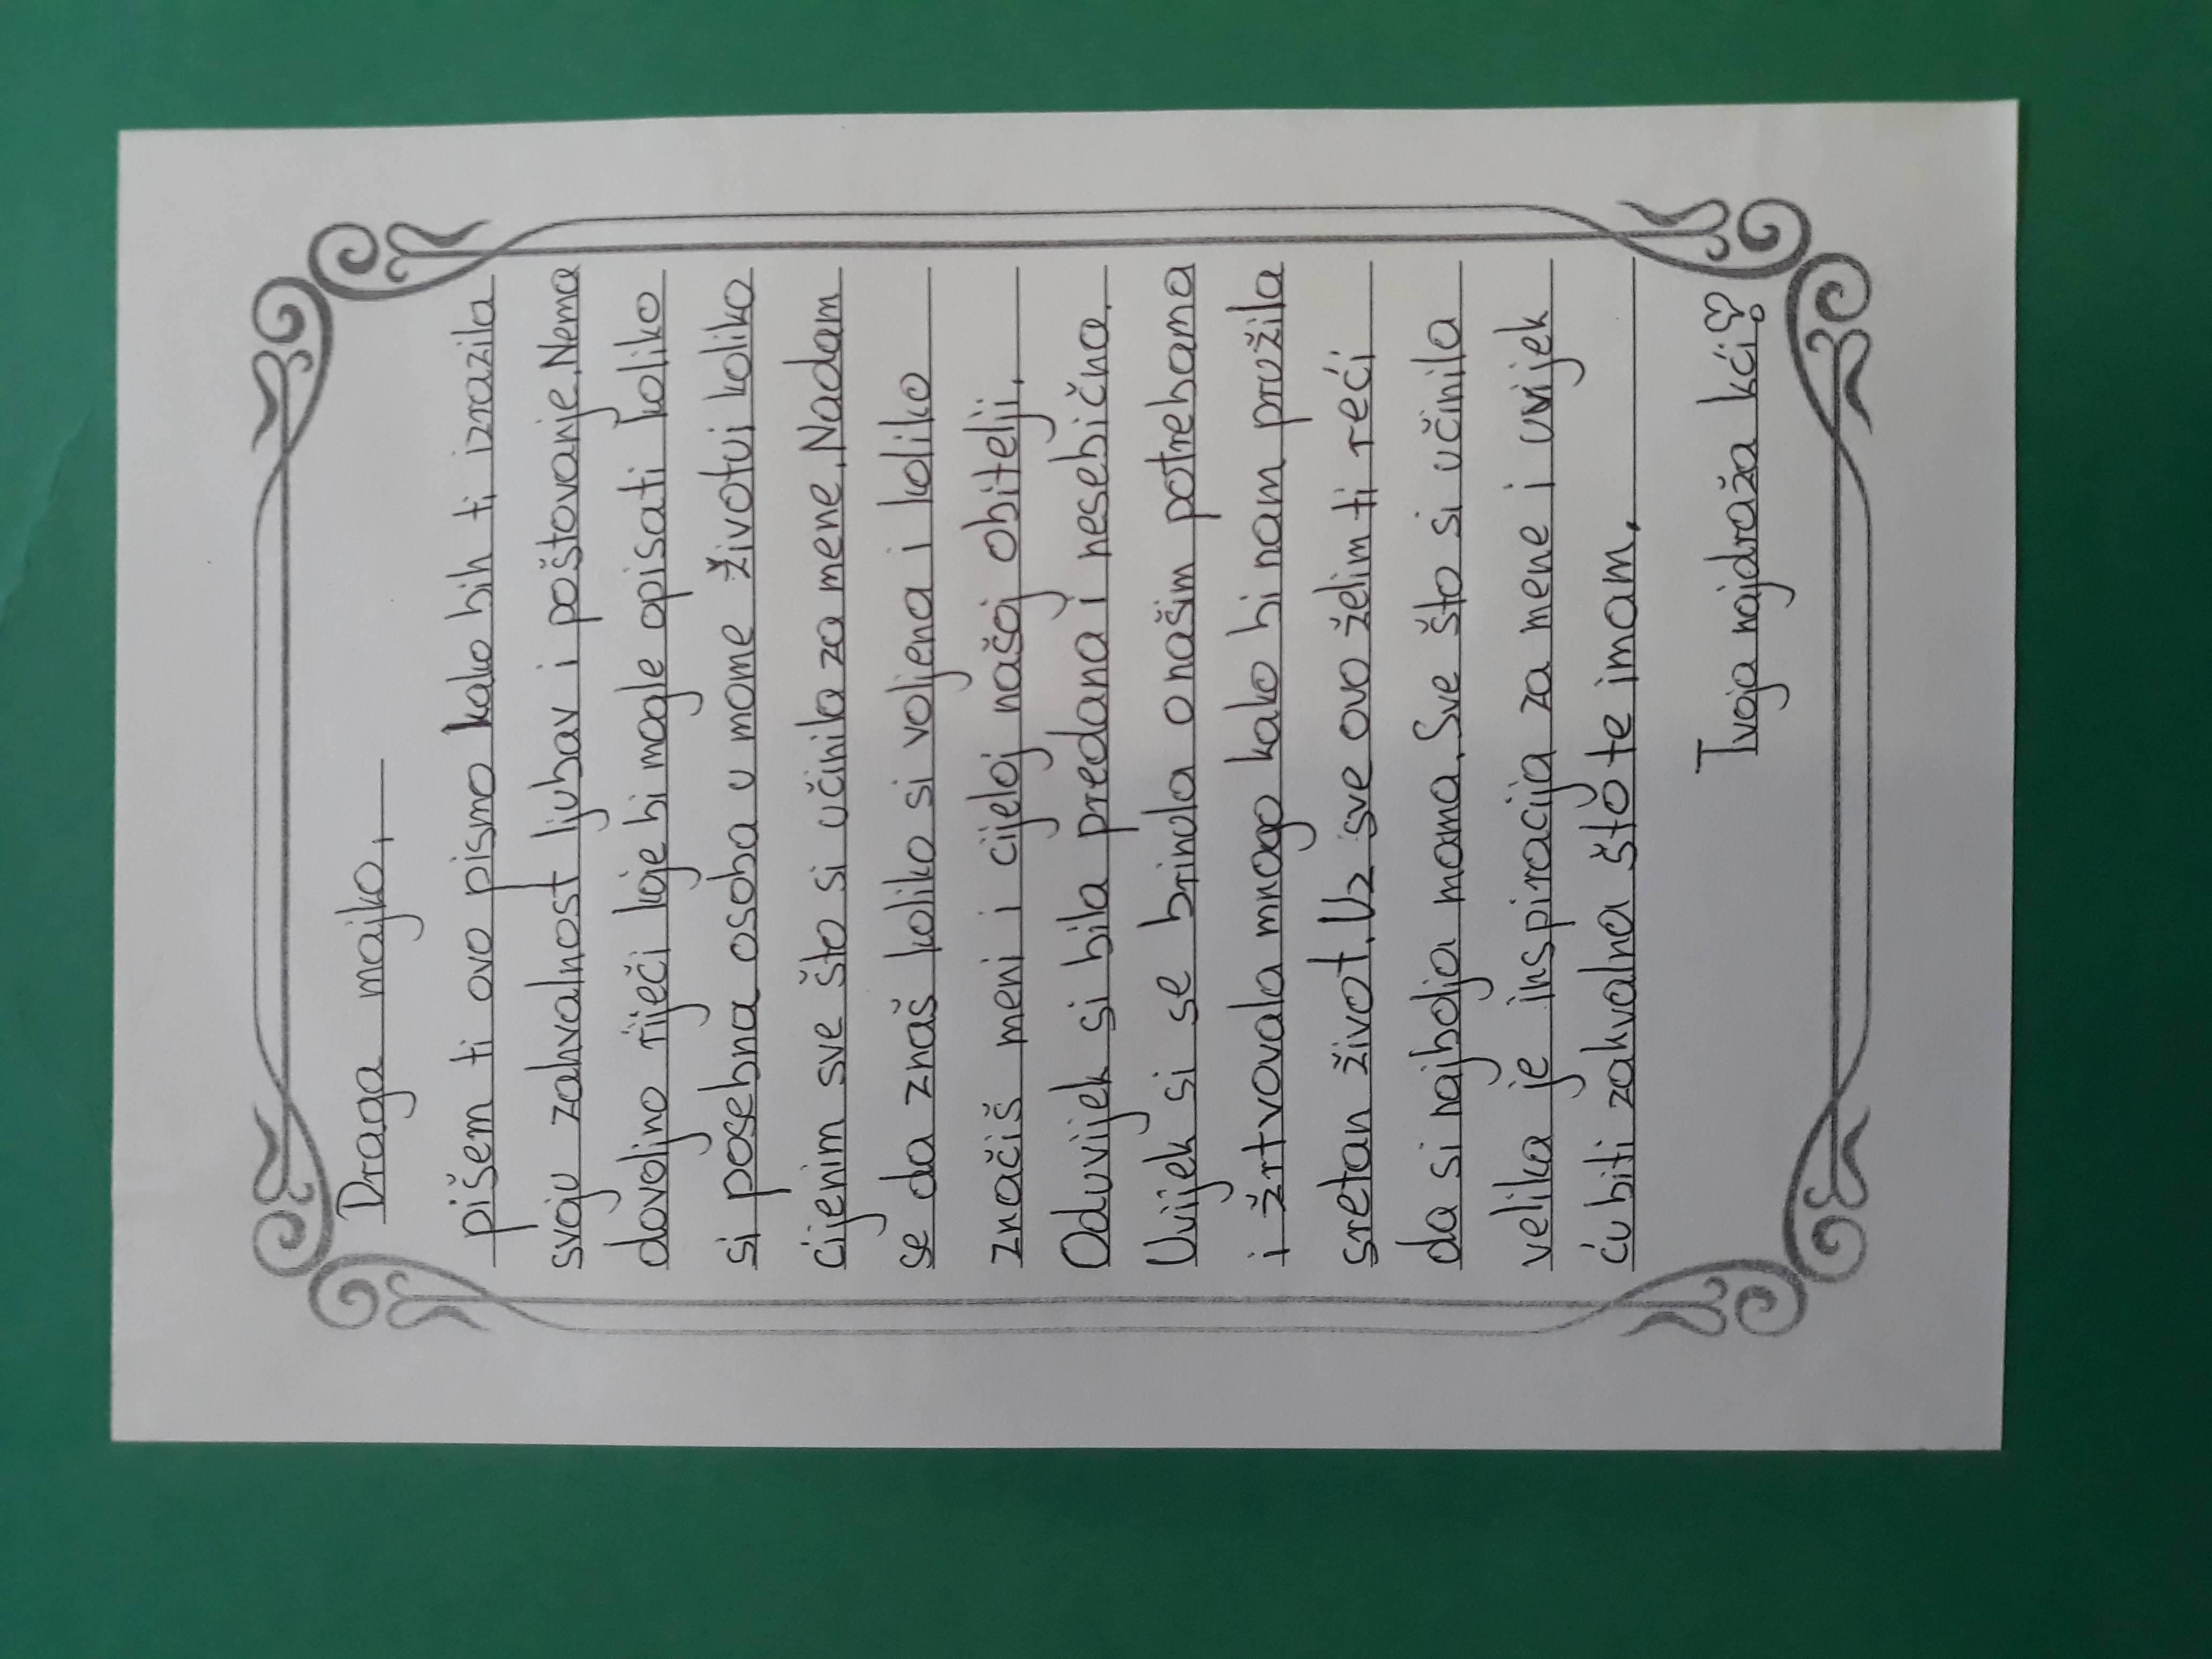 Draga majko,
pišem ti ovo pismo kako bih ti izrazila
svoju zahvalnost ljubav i poštovanje. Nema
dovoljno riječi koje bi mogle opisati koliko
si posebna osoba u mome životu i koliko
cijenim sve što si učinila za mene. Nadam
se da znaš koliko si voljena i koliko
značiš meni i cijeloj našoj obitelji.
Oduvijek si bila predana i nesebična.
Uvijek si se brinula o našim potrebama
i žrtvovala mnogo kako bi nam pružila
sretan život. Uz sve ovo želim ti reći
da si najbolja mama. Sve što si učinila
velika je inspiracija za mene i uvijek
ću biti zahvalna što te imam.
Tvoja najdraža kći♡